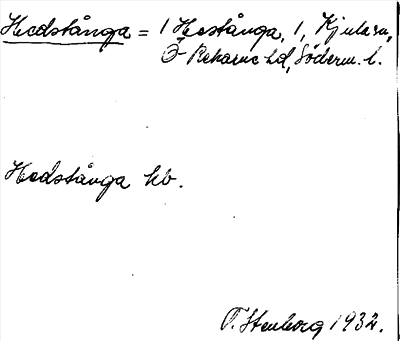 Hedstånga = 1 Hestånga, 1, Kjula sn,
Ö Rekarne hd, Söderm. l.
Hedstånga hb.
F. Stenborg 1932.